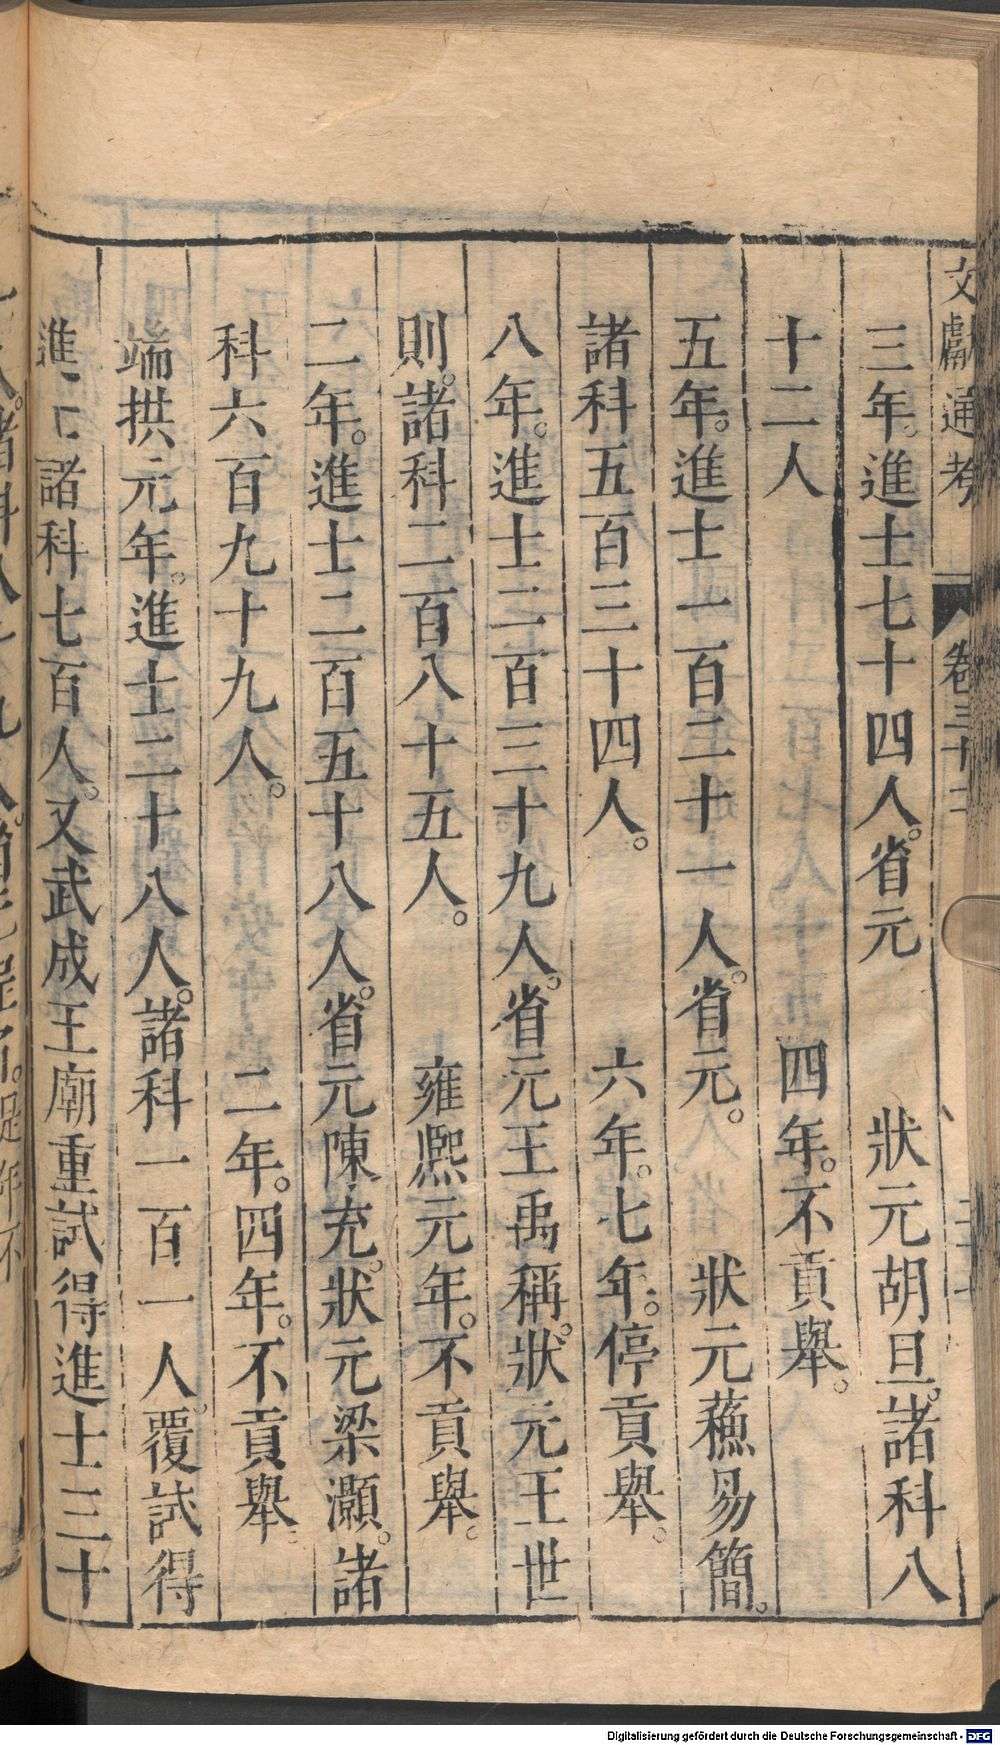 文獻通考 卷三十二
三年。進士七十四人。省元 狀元胡旦。諸科八
十二人 四年。不貢舉。
五年。進士一百二十一人。省元。 狀元蘓易簡。
諸科五百三十四人。 六年。七年。停貢舉。
八年。進士二百三十九人。省元王禹稱。狀元王世
則。諸科二百八十五人。 雍熈元年。不貢舉。
二年。進士二百五十八人。省元陳充。狀元梁灝。諸
科六百九十九人。 二年。四年。不貢舉。
端拱元年。進士二十八人。諸科一百一人。覆試得
進士諸科七百人。又武成王廟重試得進士三十
Digitalisierung gefördert durch die Deutsche Forschungsgemeinschaft - DFG